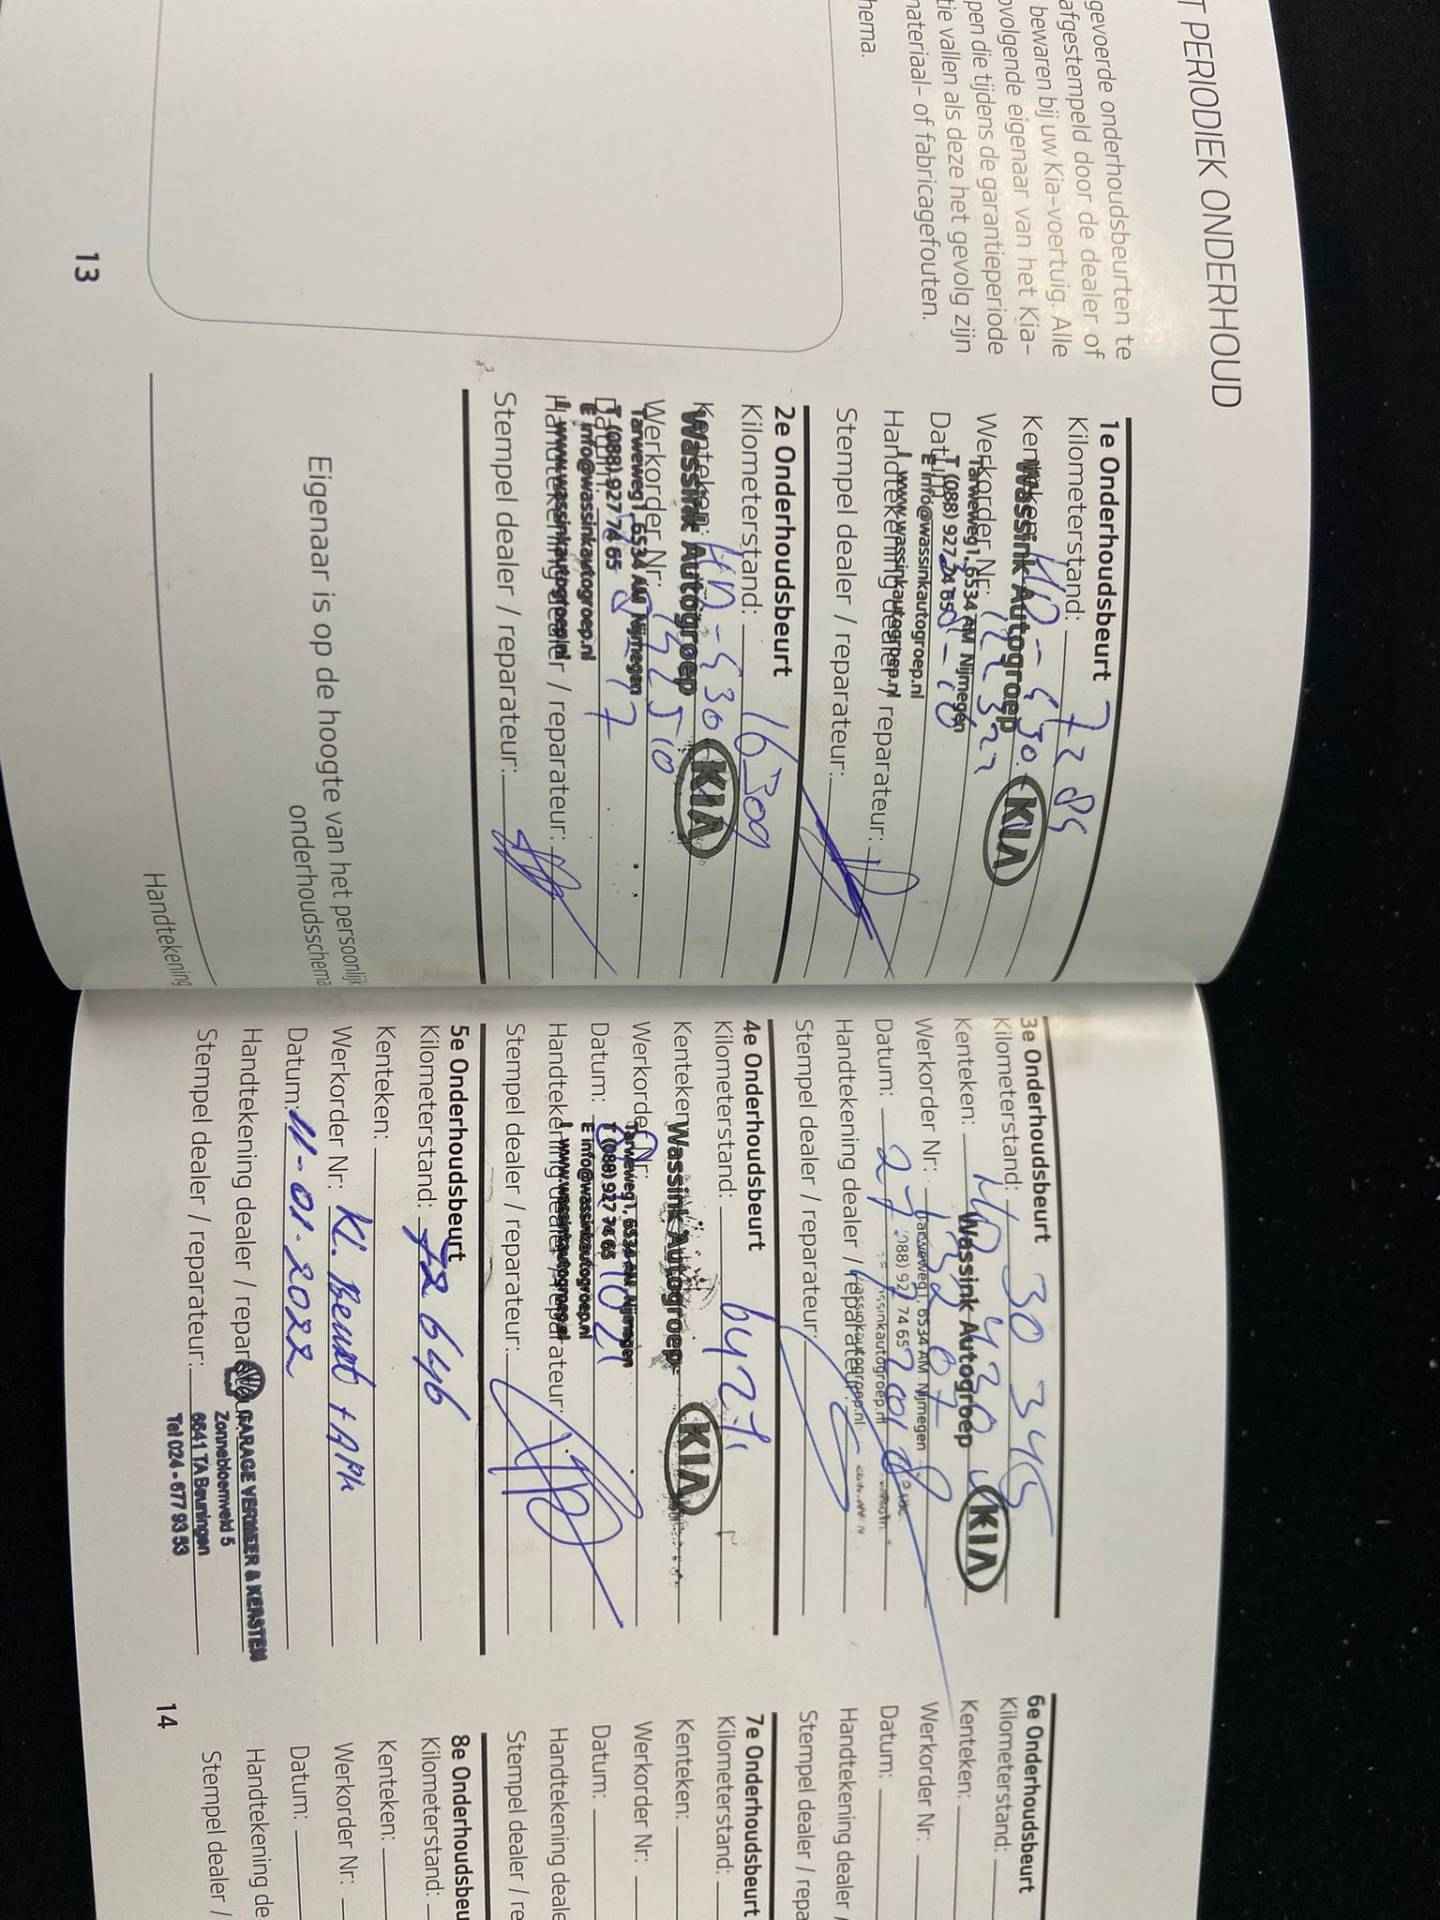 T PERIODIEK ONDERHOUD
gevoerde onderhoudsbeurten te
afgestempeld door de dealer of
bewaren bij uw Kia-voertuig. Alle
volgende eigenaar van het Kia-
pen die tijdens de garantieperiode
tie vallen als deze het gevolg zijn
materiaal- of fabricagefouten.
hema.
13
1e Onderhoudsbeurt
Kilometerstand: 7285
Kenteken:
Wassink Autogroep
KIA
Werkorder Nr:
Tarweweg 1, 6534 AM Nijmegen
Datum:
T (088) 927 74 65
E info@wassinkautogroep.nl
Handtekening dealer / reparateur:
I www.wassinkautogroep.nl
Stempel dealer / reparateur:
2e Onderhoudsbeurt
Kilometerstand: 16309
Kenteken:
Wassink Autogroep
KIA
Werkorder Nr:
Tarweweg 1, 6534 AM Nijmegen
Datum:
T (088) 927 74 65
E info@wassinkautogroep.nl
Handtekening dealer / reparateur:
I www.wassinkautogroep.nl
Stempel dealer / reparateur:
Eigenaar is op de hoogte van het persoonlijk
onderhoudsschema
Handtekening
3e Onderhoudsbeurt
Kilometerstand: 30345
Kenteken:
Wassink Autogroep
KIA
Werkorder Nr:
Tarweweg 1, 6534 AM Nijmegen
Datum:
088) 927 74 65
ssinkautogroep.nl
Handtekening dealer / reparateur:
Stempel dealer / reparateur:
4e Onderhoudsbeurt
Kilometerstand:
Kenteken:
Wassink Autogroep
KIA
Werkorder Nr:
Tarweweg 1, 6534 AM Nijmegen
Datum:
T (088) 927 74 65
E info@wassinkautogroep.nl
Handtekening dealer / reparateur:
I www.wassinkautogroep.nl
Stempel dealer / reparateur:
5e Onderhoudsbeurt
Kilometerstand: 72646
Kenteken:
Werkorder Nr: Kl. Beurt + APK
Datum: 11-01-2022
Handtekening dealer / repar
GARAGE VERMEER & KERSTEN
Zonnebloemveld 5
Stempel dealer / reparateur:
6641 TA Beuningen
Tel 024 - 677 93 53
14
6e Onderhoudsbeurt
Kilometerstand:
Kenteken:
Werkorder Nr:
Datum:
Handtekening dealer /
Stempel dealer / repa
7e Onderhoudsbeurt
Kilometerstand:
Kenteken:
Werkorder Nr:
Datum:
Handtekening deale
Stempel dealer / re
8e Onderhoudsbeu
Kilometerstand:
Kenteken:
Werkorder Nr:
Datum:
Handtekening de
Stempel dealer /